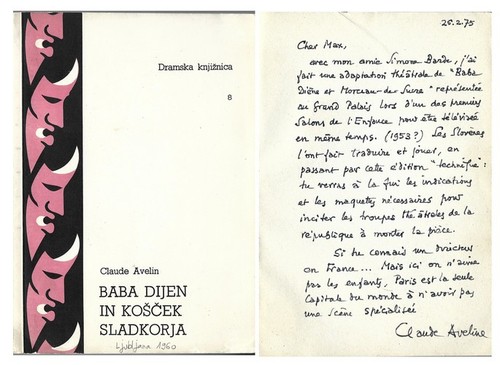 Dramska knjižnica
8
Claude Avelin
BABA DIJEN
IN KOŠČEK
SLADKORJA
Ljubljana 1960
26.2.75
Cher Max,
avec mon amie Simone Barde, j'ai
fait une adaptation théâtrale de "Baba
Diène et Morceau-de-Sucre" représentée
au Grand Palais lors d'un des premiers
Salons de l'Enfance pour être télévisée
en même temps. (1953?) Les Slovènes
l'ont fait traduire et jouer, en
passant par cette édition "technique":
tu verras à la fin les indications
et les maquettes nécessaires pour
inciter les troupes théâtrales de la
république à monter la pièce.
Si tu connais un directeur
en France... Mais ici on n'aime
pas les enfants, Paris est la seule
Capitale du monde à n'avoir pas
une scène spécialisée
Claude Aveline